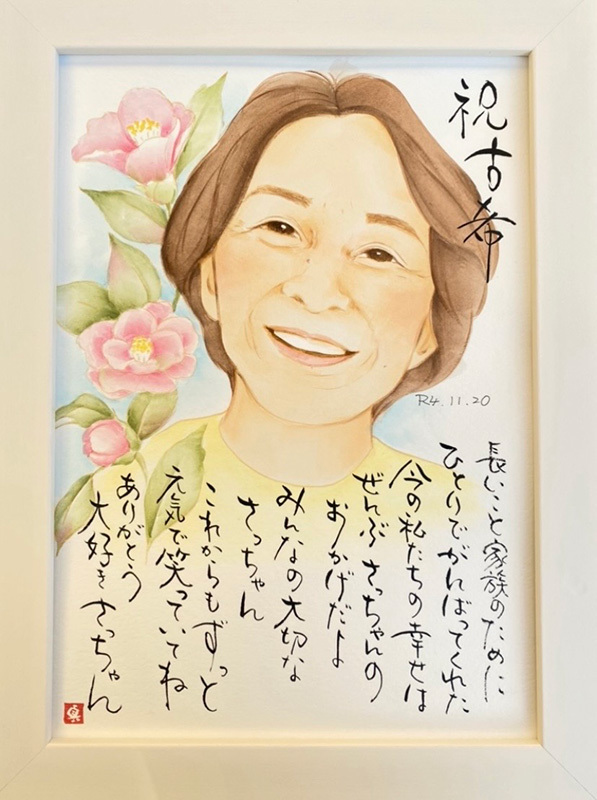 祝古希
R4.11.20
長いこと家族のために
ひとりでがんばってくれた
今の私たちの幸せは
ぜんぶさっちゃんの
おかげだよ
みんなの大切な
さっちゃん
これからもずっと
元気で笑っていてね
ありがとう
大好きさっちゃん